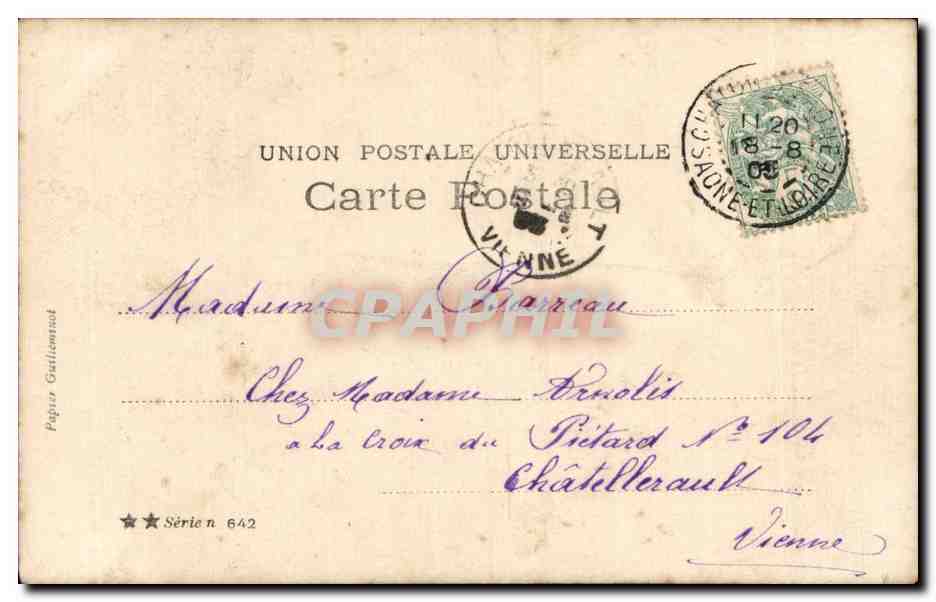 UNION POSTALE UNIVERSELLE
Carte Postale
11 20
18 -8
05
SAONE-ET-LOIRE
VIENNE
CPAPHIL
Madame Barreau
Chez Madame Arnolis
a La Croix du Piétard No 104
Châtellerault
Vienne
Papier Guilleminot
Série n 642